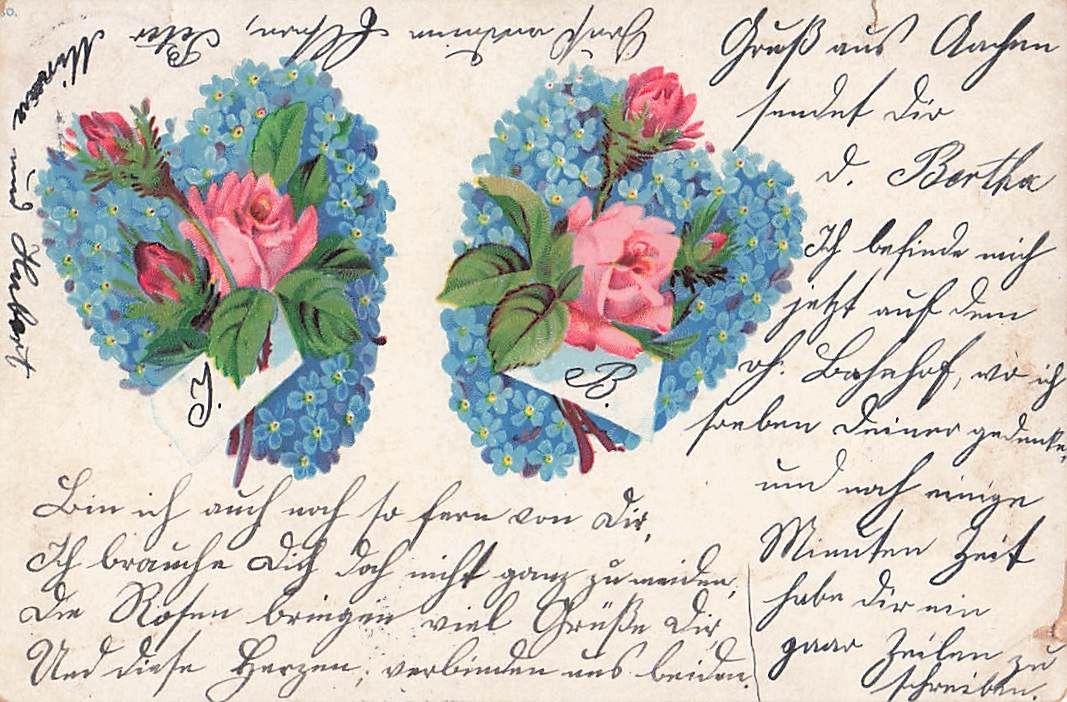 Gruß aus Aachen
sendet Dir
d. Bertha
Ich befinde mich
jetzt auf dem
Bahnhof, wo ich
soeben Deiner gedenke,
und noch einige
Minuten Zeit
habe Dir ein
paar Zeilen zu
schreiben.
B.
Bin ich auch noch so fern von Dir,
Ich brauche Dich doch nicht ganz zu meiden,
Die Rosen bringen viel Grüße Dir,
Und diese Herzen, verbinden uns beiden.
und Hubert
Peter